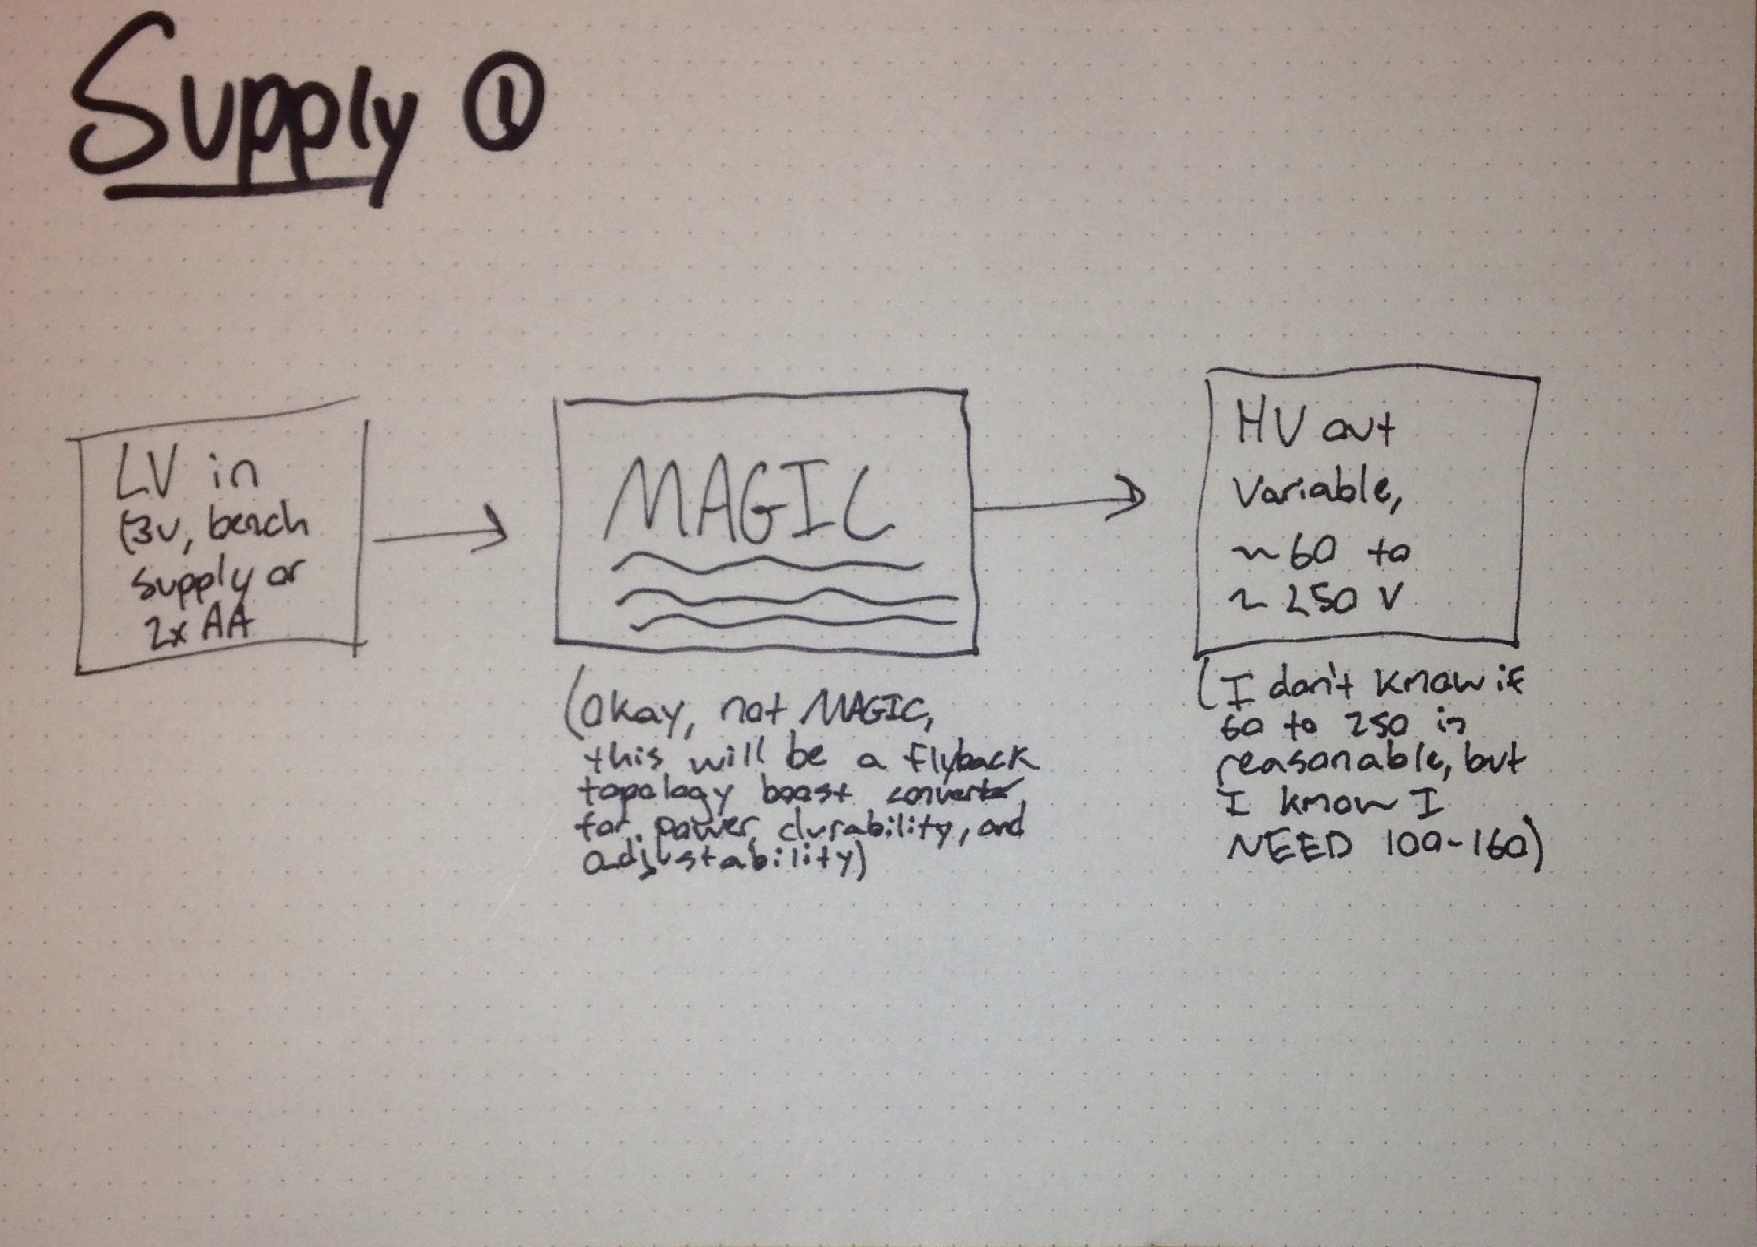 Supply ①
LV in
(3v, bench
supply or
2x AA
MAGIC
(okay, not MAGIC,
this will be a flyback
topology boost converter
for power, durability, and
adjustability)
HV out
Variable,
~60 to
~ 250 V
(I don't know if
60 to 250 is
reasonable, but
I know I
NEED 100-160)